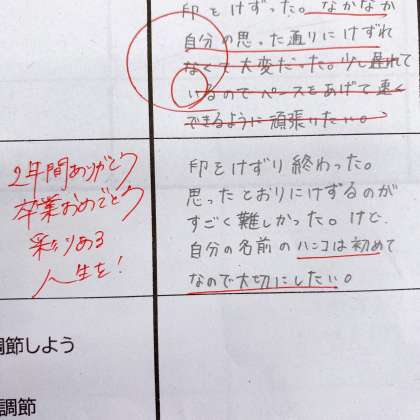 印をけずった。なかなか
自分の思った通りにけずれ
なくて大変だった。少し遅れて
いるのでペースをあげて速く
できるように頑張りたい。
2年間ありがとう
卒業おめでとう
彩りある
人生を!
印をけずり終わった。
思ったとおりにけずるのが
すごく難しかった。けど、
自分の名前のハンコは初めて
なので大切にしたい。
調節しよう
調節